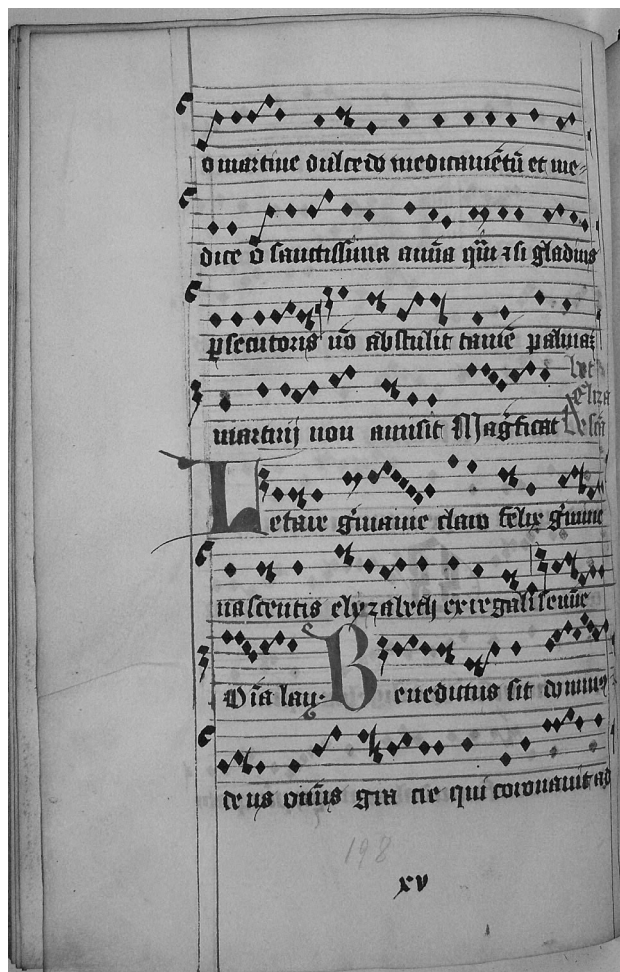 o martine dulcedo medicamētū et me-
dice o sanctissima aīa quā ⁊si gladius
ꝑsecutoris nō abstulit tamē palmam
martirij non amisit Magficat
Letare gͥmanie claro felix gͥmine
nascentis elyzabeth ex regali semīe
Oīa lau Benedictus sit dominus
deus omīs gra cie qui coronauit ad
198
xv